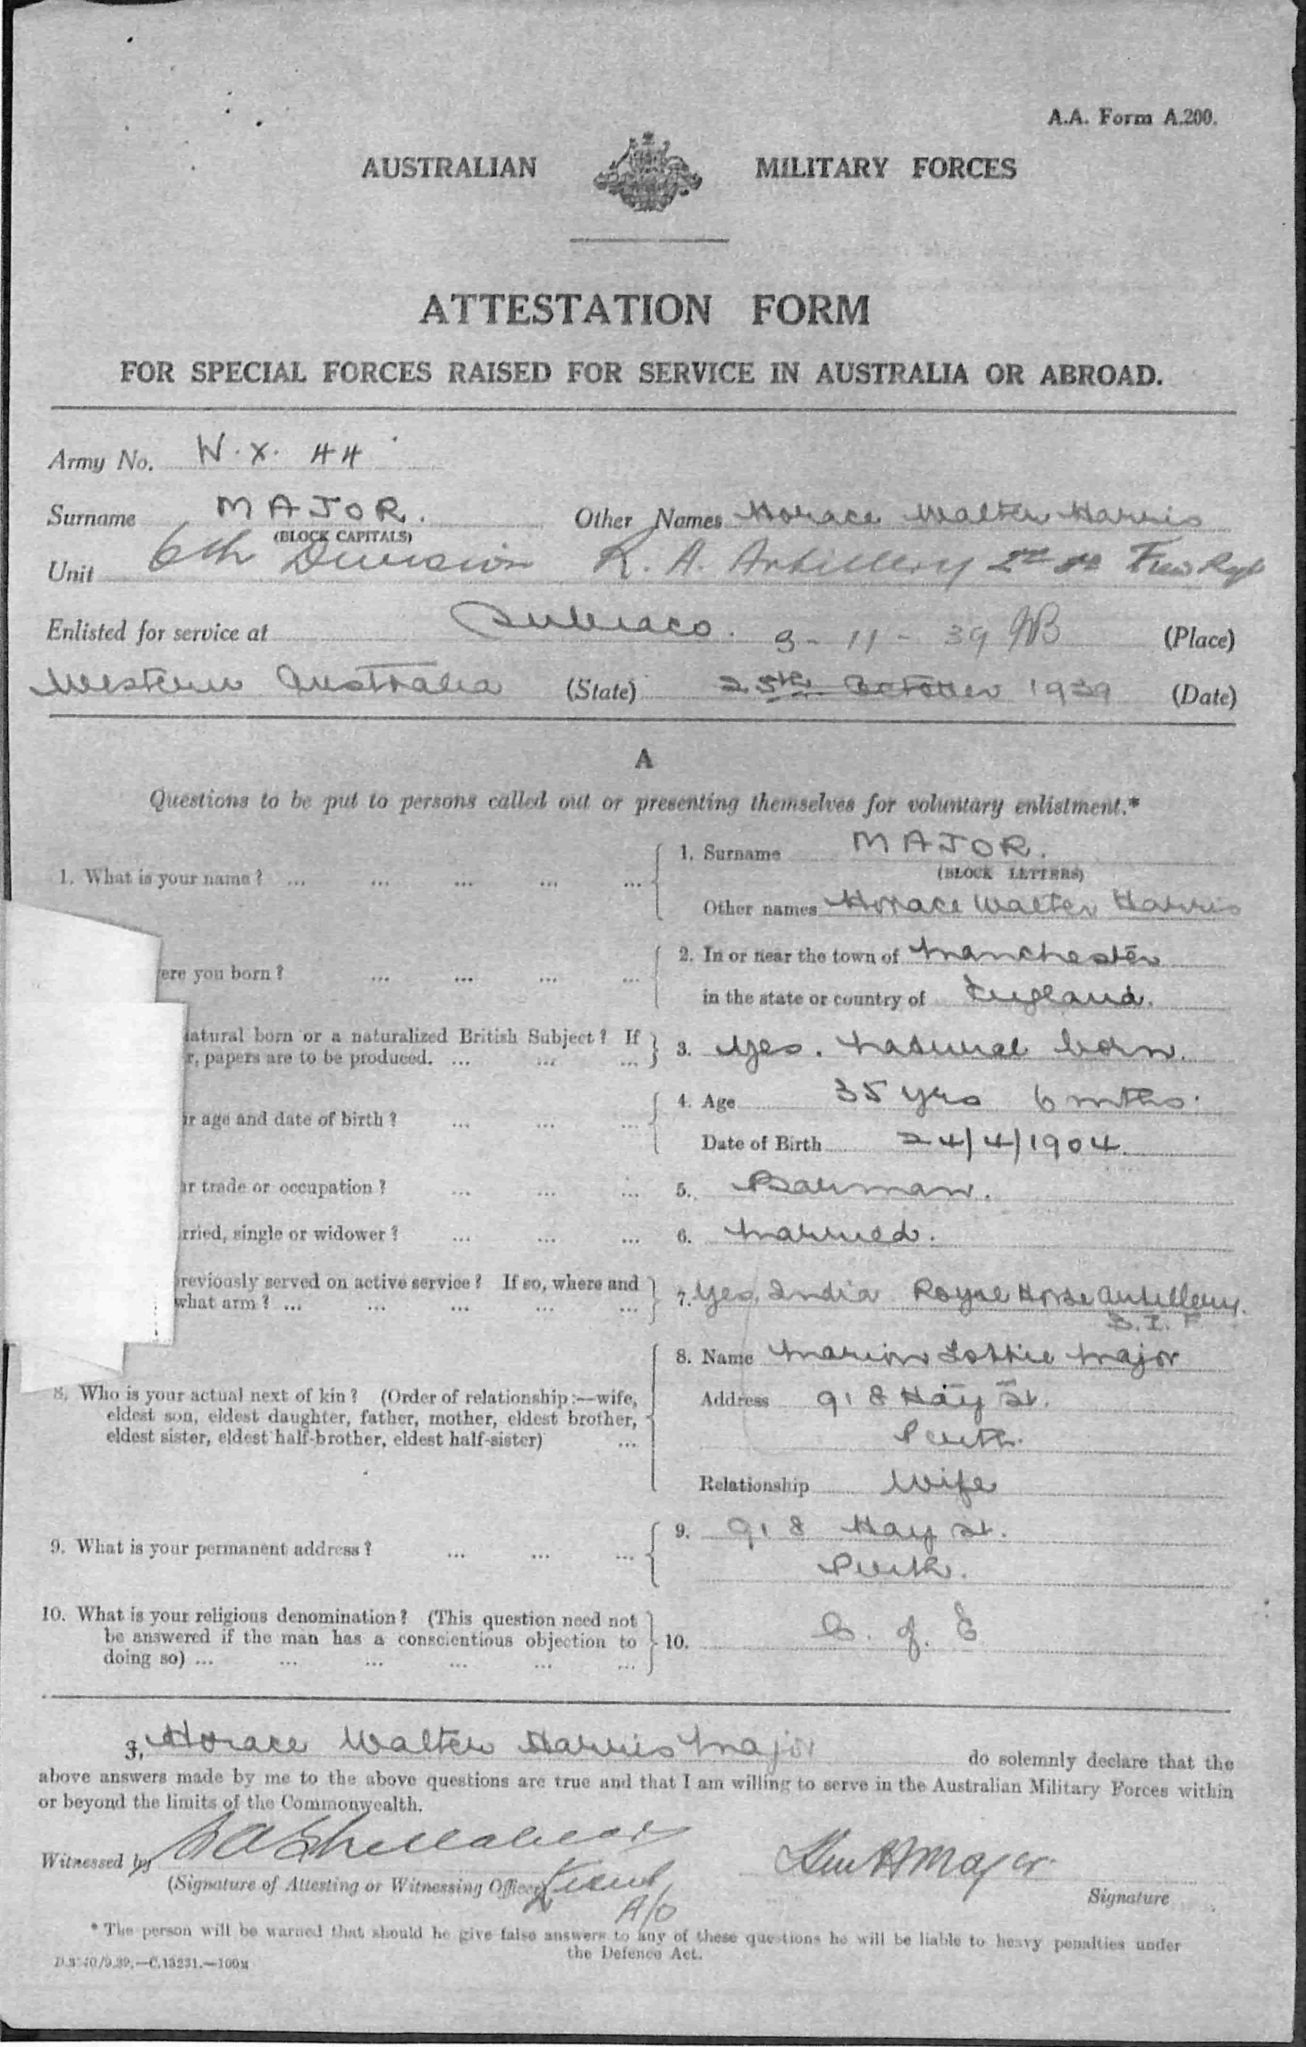 A.A. Form A.200.
AUSTRALIAN MILITARY FORCES
ATTESTATION FORM
FOR SPECIAL FORCES RAISED FOR SERVICE IN AUSTRALIA OR ABROAD.
Army No. W.X. 44
Surname MAJOR. Other Names Horace Walter Harris
(BLOCK CAPITALS)
Unit 6th Division R. A. Artillery
Enlisted for service at Subiaco. 3-11-39 (Place)
Western Australia (State) 25th October 1939 (Date)
A
Questions to be put to persons called out or presenting themselves for voluntary enlistment.*
1. What is your name? ... ... ... ... ... 1. Surname MAJOR.
(BLOCK LETTERS)
Other names Horace Walter Harris
ere you born? ... ... ... ... 2. In or near the town of Manchester
in the state or country of England.
natural born or a naturalized British Subject? If
r, papers are to be produced. ... ... ... 3. Yes. Natural born.
r age and date of birth? ... ... ... 4. Age 35 yrs 6 mths.
Date of Birth 24/4/1904.
r trade or occupation? ... ... ... 5. Barman.
rried, single or widower? ... ... ... 6. Married.
previously served on active service? If so, where and
what arm? ... ... ... ... ... 7. Yes, India Royal Horse Artillery.
8. Name Marion Lottie Major
8. Who is your actual next of kin? (Order of relationship:—wife, Address 918 Hay St.
eldest son, eldest daughter, father, mother, eldest brother,
eldest sister, eldest half-brother, eldest half-sister) ... Perth.
Relationship Wife
9. What is your permanent address? ... ... ... 9. 918 Hay St.
Perth.
10. What is your religious denomination? (This question need not
be answered if the man has a conscientious objection to 10. C. of E
doing so) ... ... ... ... ... ...
I, Horace Walter Harris Major do solemnly declare that the
above answers made by me to the above questions are true and that I am willing to serve in the Australian Military Forces within
or beyond the limits of the Commonwealth.
Witnessed by
(Signature of Attesting or Witnessing Officer) Lieut
A/O
Signature
* The person will be warned that should he give false answers to any of these questions he will be liable to heavy penalties under
the Defence Act.